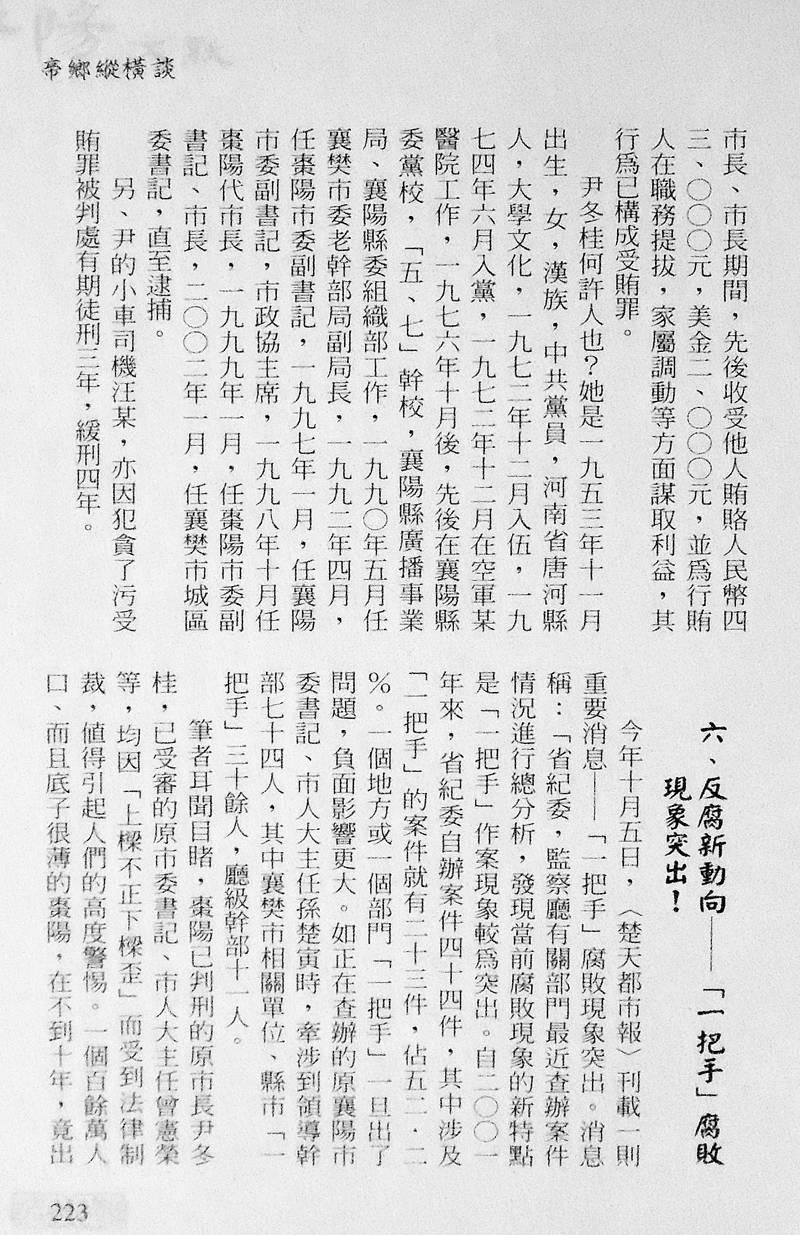 帝鄉縱橫談
市長、市長期間，先後收受他人賄賂人民幣四
三、〇〇〇元，美金二、〇〇〇元，並爲行賄
人在職務提拔，家屬調動等方面謀取利益，其
行爲已構成受賄罪。
尹冬桂何許人也？她是一九五三年十一月
出生，女，漢族，中共黨員，河南省唐河縣
人，大學文化，一九七二年十二月入伍，一九
七四年六月入黨，一九七二年十二月在空軍某
醫院工作，一九七六年十月後，先後在襄陽縣
委黨校，「五、七」幹校，襄陽縣廣播事業
局、襄陽縣委組織部工作，一九九〇年五月任
襄樊市委老幹部局副局長，一九九二年四月，
任棗陽市委副書記，一九九七年一月，任襄陽
市委副書記，市政協主席，一九九八年十月任
棗陽代市長，一九九九年一月，任棗陽市委副
書記、市長，二〇〇二年一月，任襄樊市城區
委書記，直至逮捕。
另、尹的小車司機汪某，亦因犯貪了污受
賄罪被判處有期徒刑三年，緩刑四年。
六、反腐新動向——「一把手」腐敗
現象突出！
今年十月五日，〈楚天都市報〉刊載一則
重要消息——「一把手」腐敗現象突出。消息
稱：「省紀委，監察廳有關部門最近查辦案件
情況進行總分析，發現當前腐敗現象的新特點
是「一把手」作案現象較爲突出。自二〇〇一
年來，省紀委自辦案件四十四件，其中涉及
「一把手」的案件就有二十三件，佔五二．二
%。一個地方或一個部門「一把手」一旦出了
問題，負面影響更大。如正在查辦的原襄陽市
委書記、市人大主任孫楚寅時，牽涉到領導幹
部七十四人，其中襄樊市相關單位、縣市「一
把手」三十餘人，廳級幹部十一人。
筆者耳聞目睹，棗陽已判刑的原市長尹冬
桂，已受審的原市委書記、市人大主任曾憲榮
等，均因「上樑不正下樑歪」而受到法律制
裁，値得引起人們的高度警惕。一個百餘萬人
口、而且底子很薄的棗陽，在不到十年，竟出
223